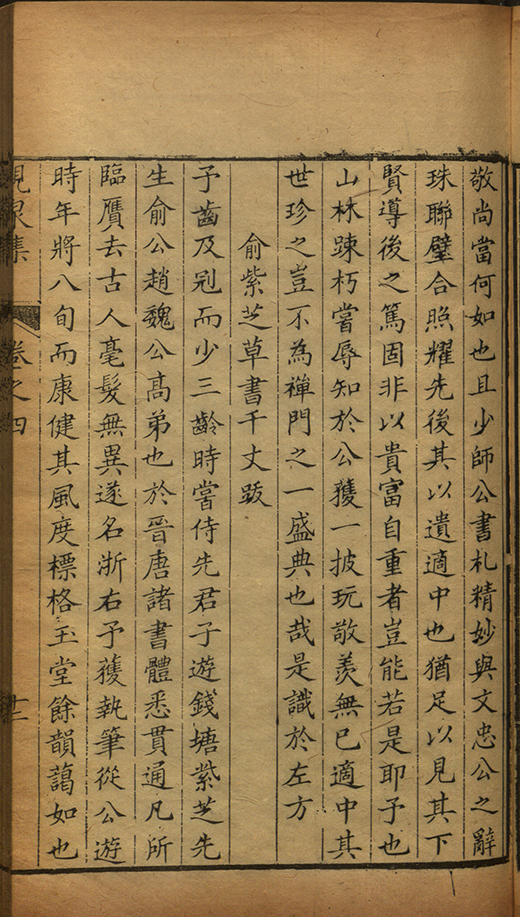 敬尚當何如也且少師公書札精妙與文忠公之辭
珠聯璧合照耀先後其以遺適中也猶足以見其下
賢導後之篤固非以貴富自重者豈能若是耶予也
山林踈朽嘗辱知於公獲一披玩敬羨無已適中其
世珍之豈不為禪門之一盛典也哉是識於左方
俞紫芝草書千丈跋
予齒及剠而少三齡時嘗侍先君子遊錢塘紫芝先
生俞公趙魏公髙弟也於晉唐諸書體悉貫通凡所
臨贋去古人毫髮無異遂名浙右予獲執筆從公遊
時年將八旬而康健其風度標格玉堂餘韻藹如也
峴泉集
卷之四